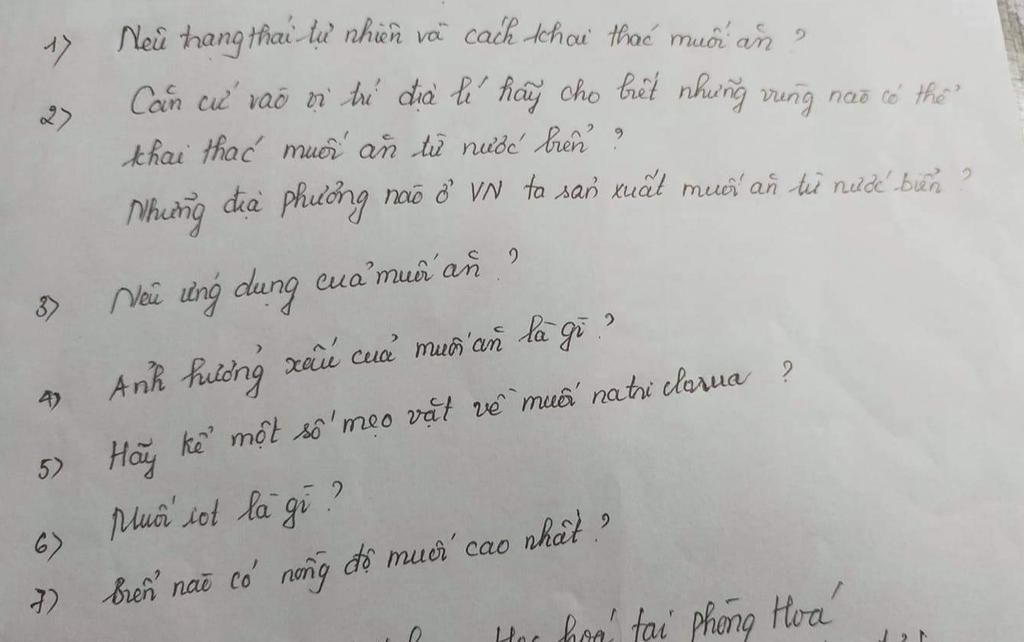 1) Nêu trạng thái tự nhiên và cách khai thác muối ăn ?
2) Căn cứ vào vị trí địa lí hãy cho biết những vùng nào có thể
khai thác muối ăn từ nước biển ?
Những địa phương nào ở VN ta sản xuất muối ăn từ nước biển ?
3) Nêu ứng dụng của muối ăn ?
4) Ảnh hưởng xấu của muối ăn là gì ?
5) Hãy kể một số mẹo vặt về muối natri clorua ?
6) Muối iot là gì ?
7) Biển nào có nồng độ muối cao nhất ?
hoá tại phòng Hoá